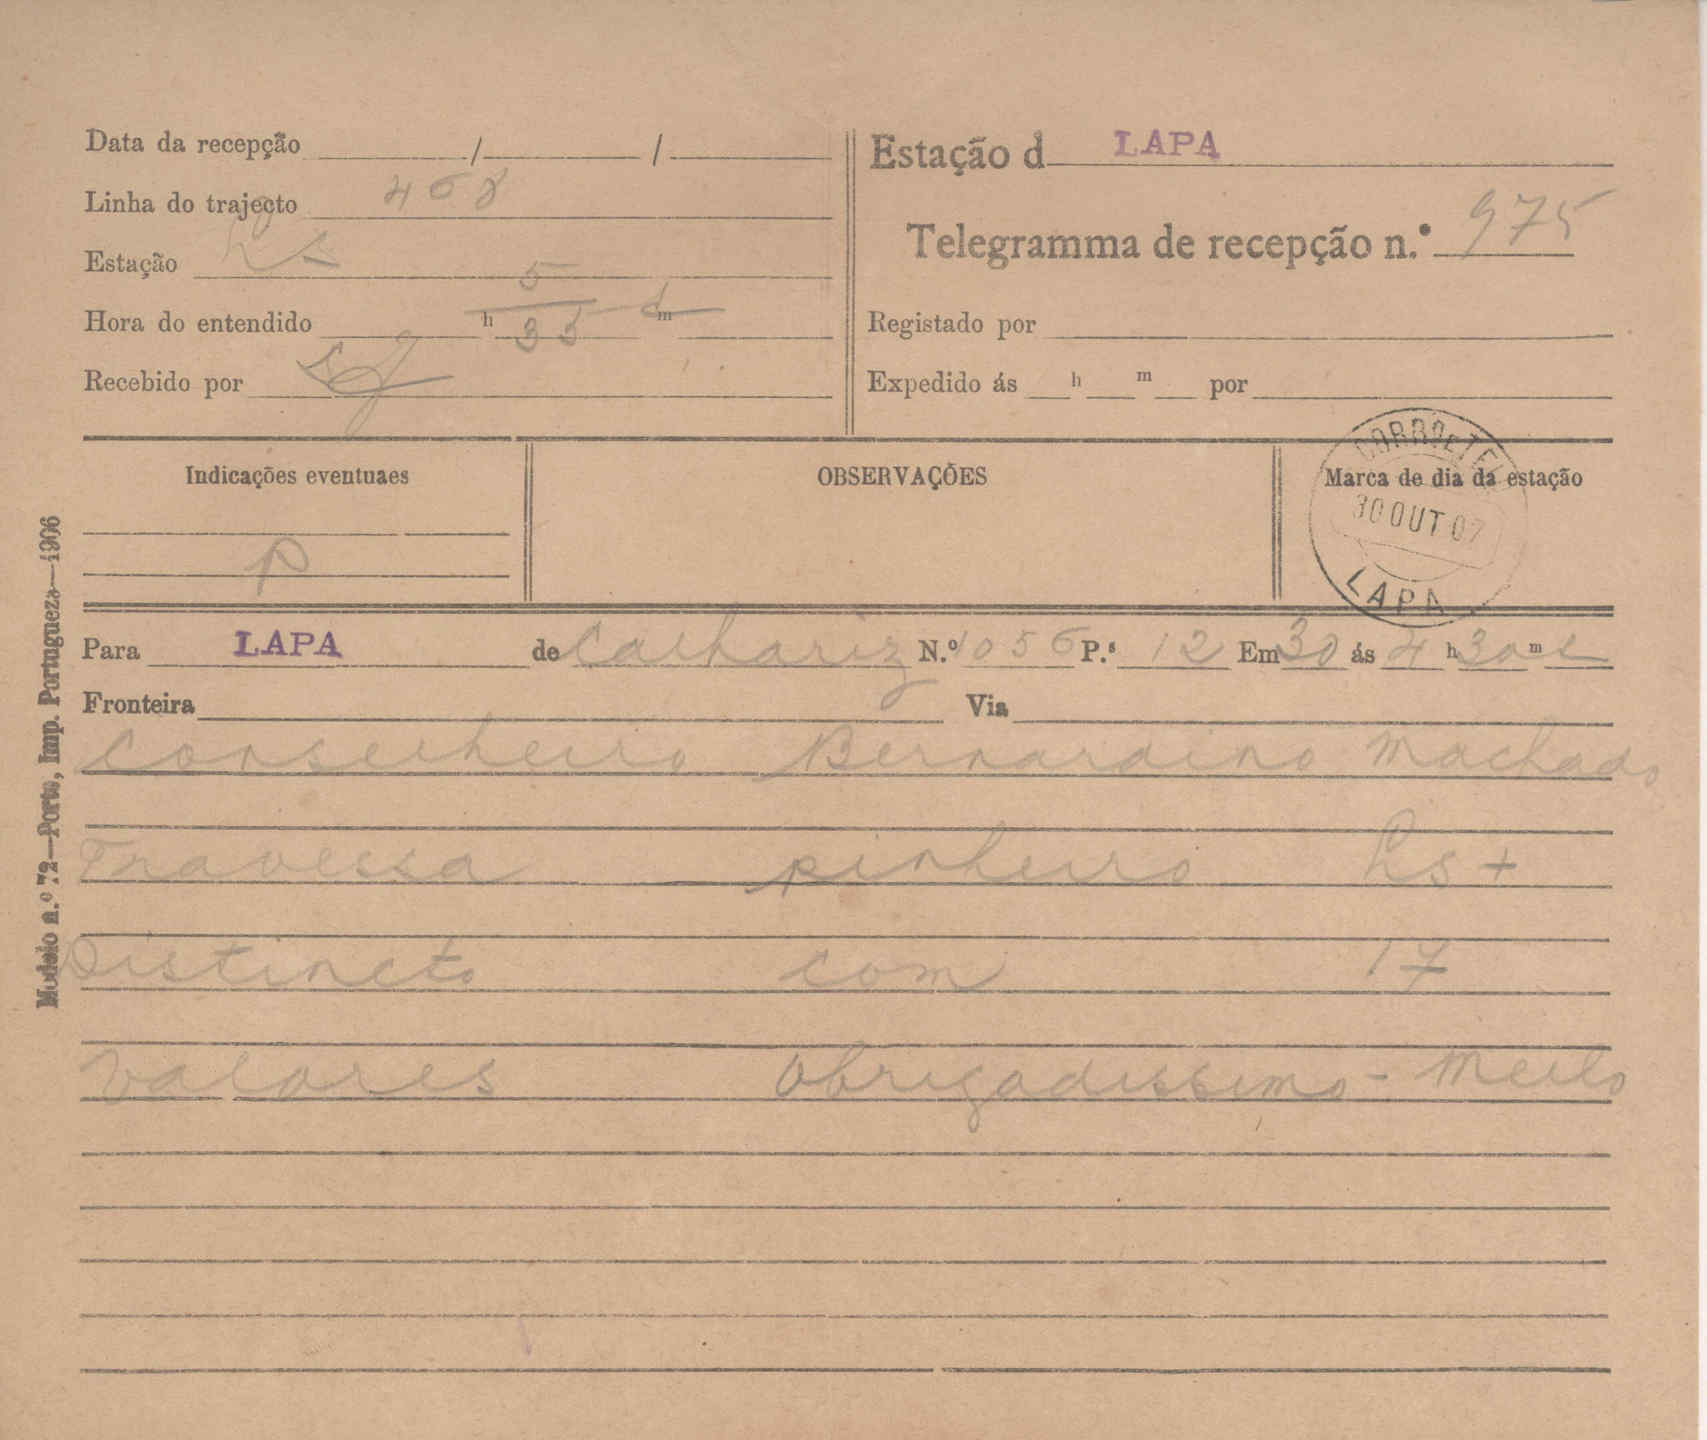 Data da recepção / /
Linha do trajecto 468
Estação Ls
Hora do entendido h m
5
35
Recebido por
Estação d LAPA
Telegramma de recepção n.º 975
Registado por
Expedido ás h m por
Indicações eventuaes
P
OBSERVAÇÕES
Marca de dia da estação
CORRO E TEL
30 OUT 07
LAPA
Para LAPA de Calhariz N.º 1056 P.s 12 Em 30 ás 4 h 30 m
Fronteira Via
Conselheiro Bernardino Machado
Travessa pinheiro Ls +
Distincto com 17
Valores Obrigadissimo - Mello
Modelo n.º 72—Porto, Imp. Portugueza—1906